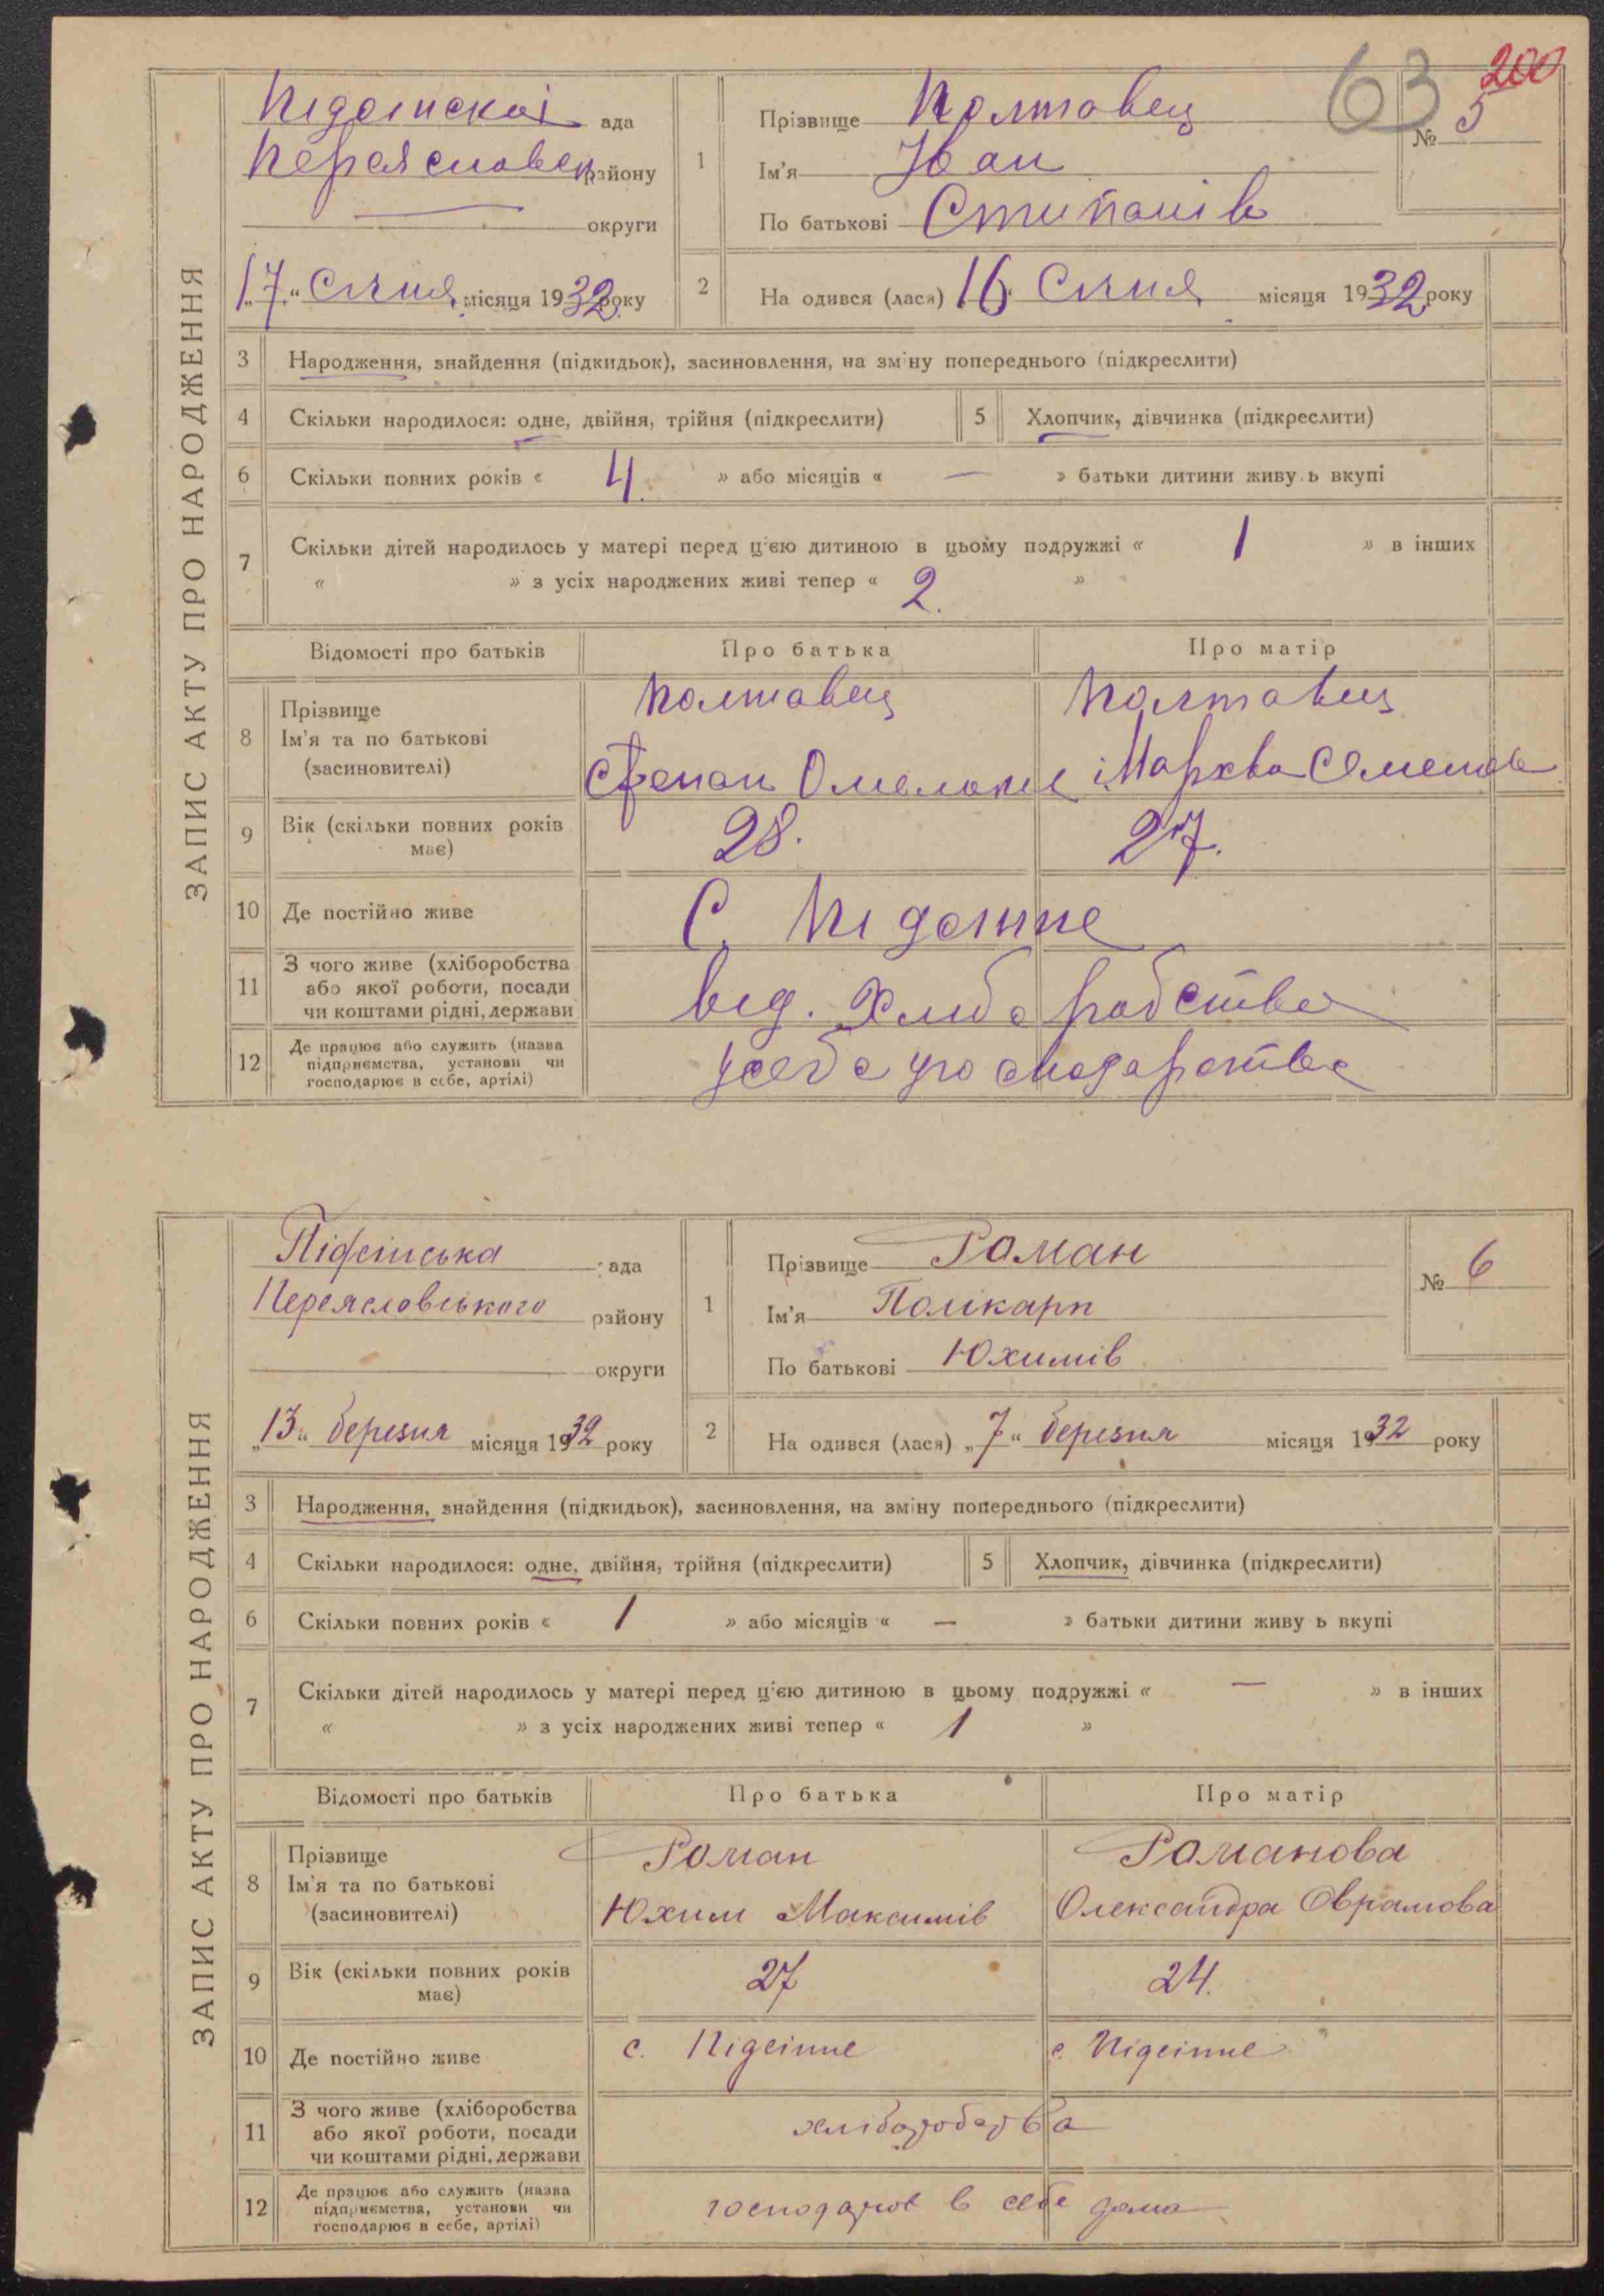 63 200
ЗАПИС АКТУ ПРО НАРОДЖЕННЯ
ада
району
округи
„17.“ Січня місяця 1932 року
1
Прізвище Полтавец
Ім'я Іван
По батькові
№ 5
2 На одився (лася) 16 Січня місяця 1932 року
3 Народження, знайдення (підкидьок), засиновлення, на зміну попереднього (підкреслити)
4 Скільки народилося: одне, двійня, трійня (підкреслити)
5 Хлопчик, дівчинка (підкреслити)
6 Скільки повних років « 4. » або місяців « — » батьки дитини живу ь вкупі
7 Скільки дітей народилось у матері перед ц'єю дитиною в цьому подружжі « 1 » в інших
« » з усіх народжених живі тепер « 2. »
Відомості про батьків Про батька Про матір
8 Прізвище
Ім'я та по батькові
(засиновителі)
Полтавец
Степан
Полтавец
9 Вік (скільки повних років
має)
28. 27.
10 Де постійно живе С.
11 З чого живе (хліборобства
або якої роботи, посади
чи коштами рідні, держави
від.
12 Де працює або служить (назва
підприємства, установи чи
господарює в себе, артілі)
ЗАПИС АКТУ ПРО НАРОДЖЕННЯ
Підсінська ада
Переясловського району
округи
„13“ березня місяця 1932 року
1
Прізвище Роман
Ім'я Полікарп
По батькові Юхимів
№ 6
2 На одився (лася) „7“ березня місяця 1932 року
3 Народження, знайдення (підкидьок), засиновлення, на зміну попереднього (підкреслити)
4 Скільки народилося: одне, двійня, трійня (підкреслити)
5 Хлопчик, дівчинка (підкреслити)
6 Скільки повних років « 1 » або місяців « — » батьки дитини живу ь вкупі
7 Скільки дітей народилось у матері перед ц'єю дитиною в цьому подружжі « — » в інших
« » з усіх народжених живі тепер « 1 »
Відомості про батьків Про батька Про матір
8 Прізвище
Ім'я та по батькові
(засиновителі)
Роман
Юхим Максимів
Романова
Олександра Оврамова
9 Вік (скільки повних років
має)
27 24.
10 Де постійно живе с. Підсінне с. Підсінне
11 З чого живе (хліборобства
або якої роботи, посади
чи коштами рідні, держави
хліборобства
12 Де працює або служить (назва
підприємства, установи чи
господарює в себе, артілі)
господарює в себе дома